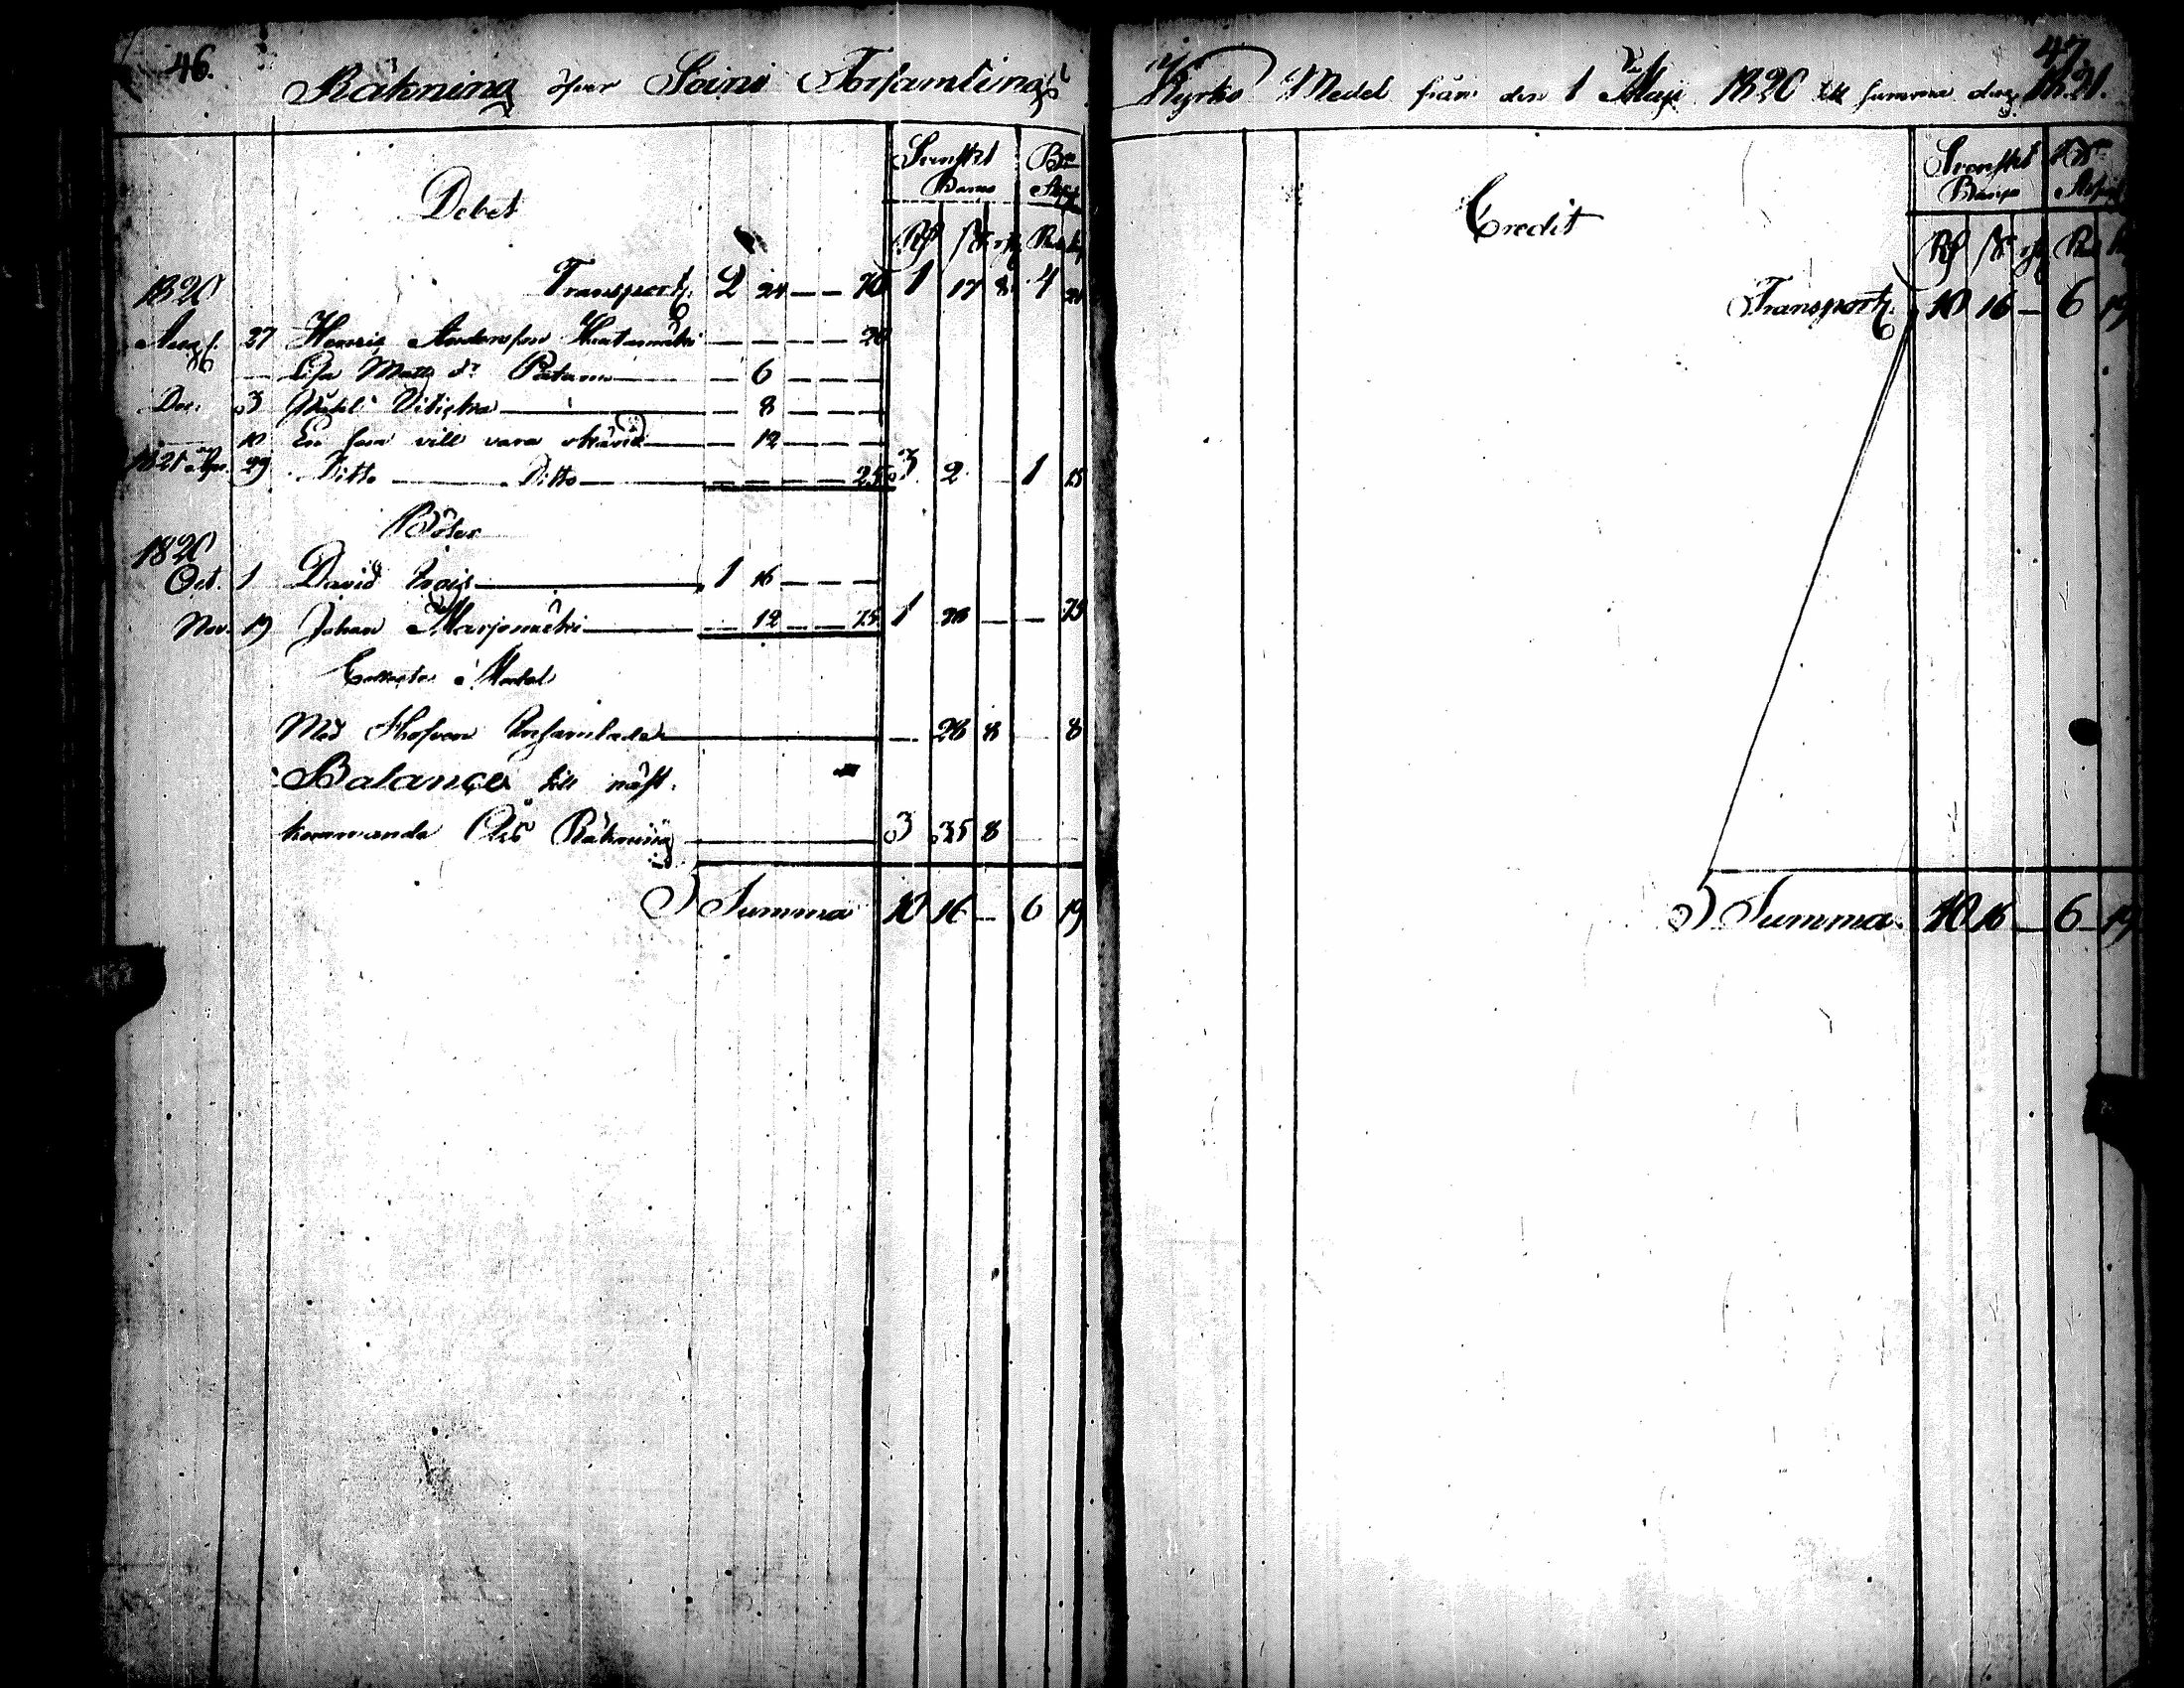 46.
Räkning öfver Soini Församlings
Debet
Svenskt Banco
Rd sk rst
1820
Transport. 2 24 — — 70 1 17 8 4 21
Aug. 27 Henric Andersson — — — — 20
— Lisa Matts dr — 6 — — —
Dec. 3 — 8 — — —
10 En som vill vara okänd — 12 — — —
1821 Apr. 29 Ditto Ditto — — — — 25 3 2 — 1 15
Böter
1820
Oct. 1 David 1 16 — — —
Nov. 19 Johan Marjomäki — 12 — — 75 1 28 — — 75
Collecte Medel
Med Håfven Insamlade — 28 8 8
Balance till näst-
kommande Års Räkning 3 35 8
Summa 10 16 — 6 19
47.
Kyrko Medel från den 1 Maji 1820 till samma dag 1821.
Credit
Svenskt Banco
Rd sk rst
Transport. 10 16 — 6 19
Summa. 10 16 — 6 19